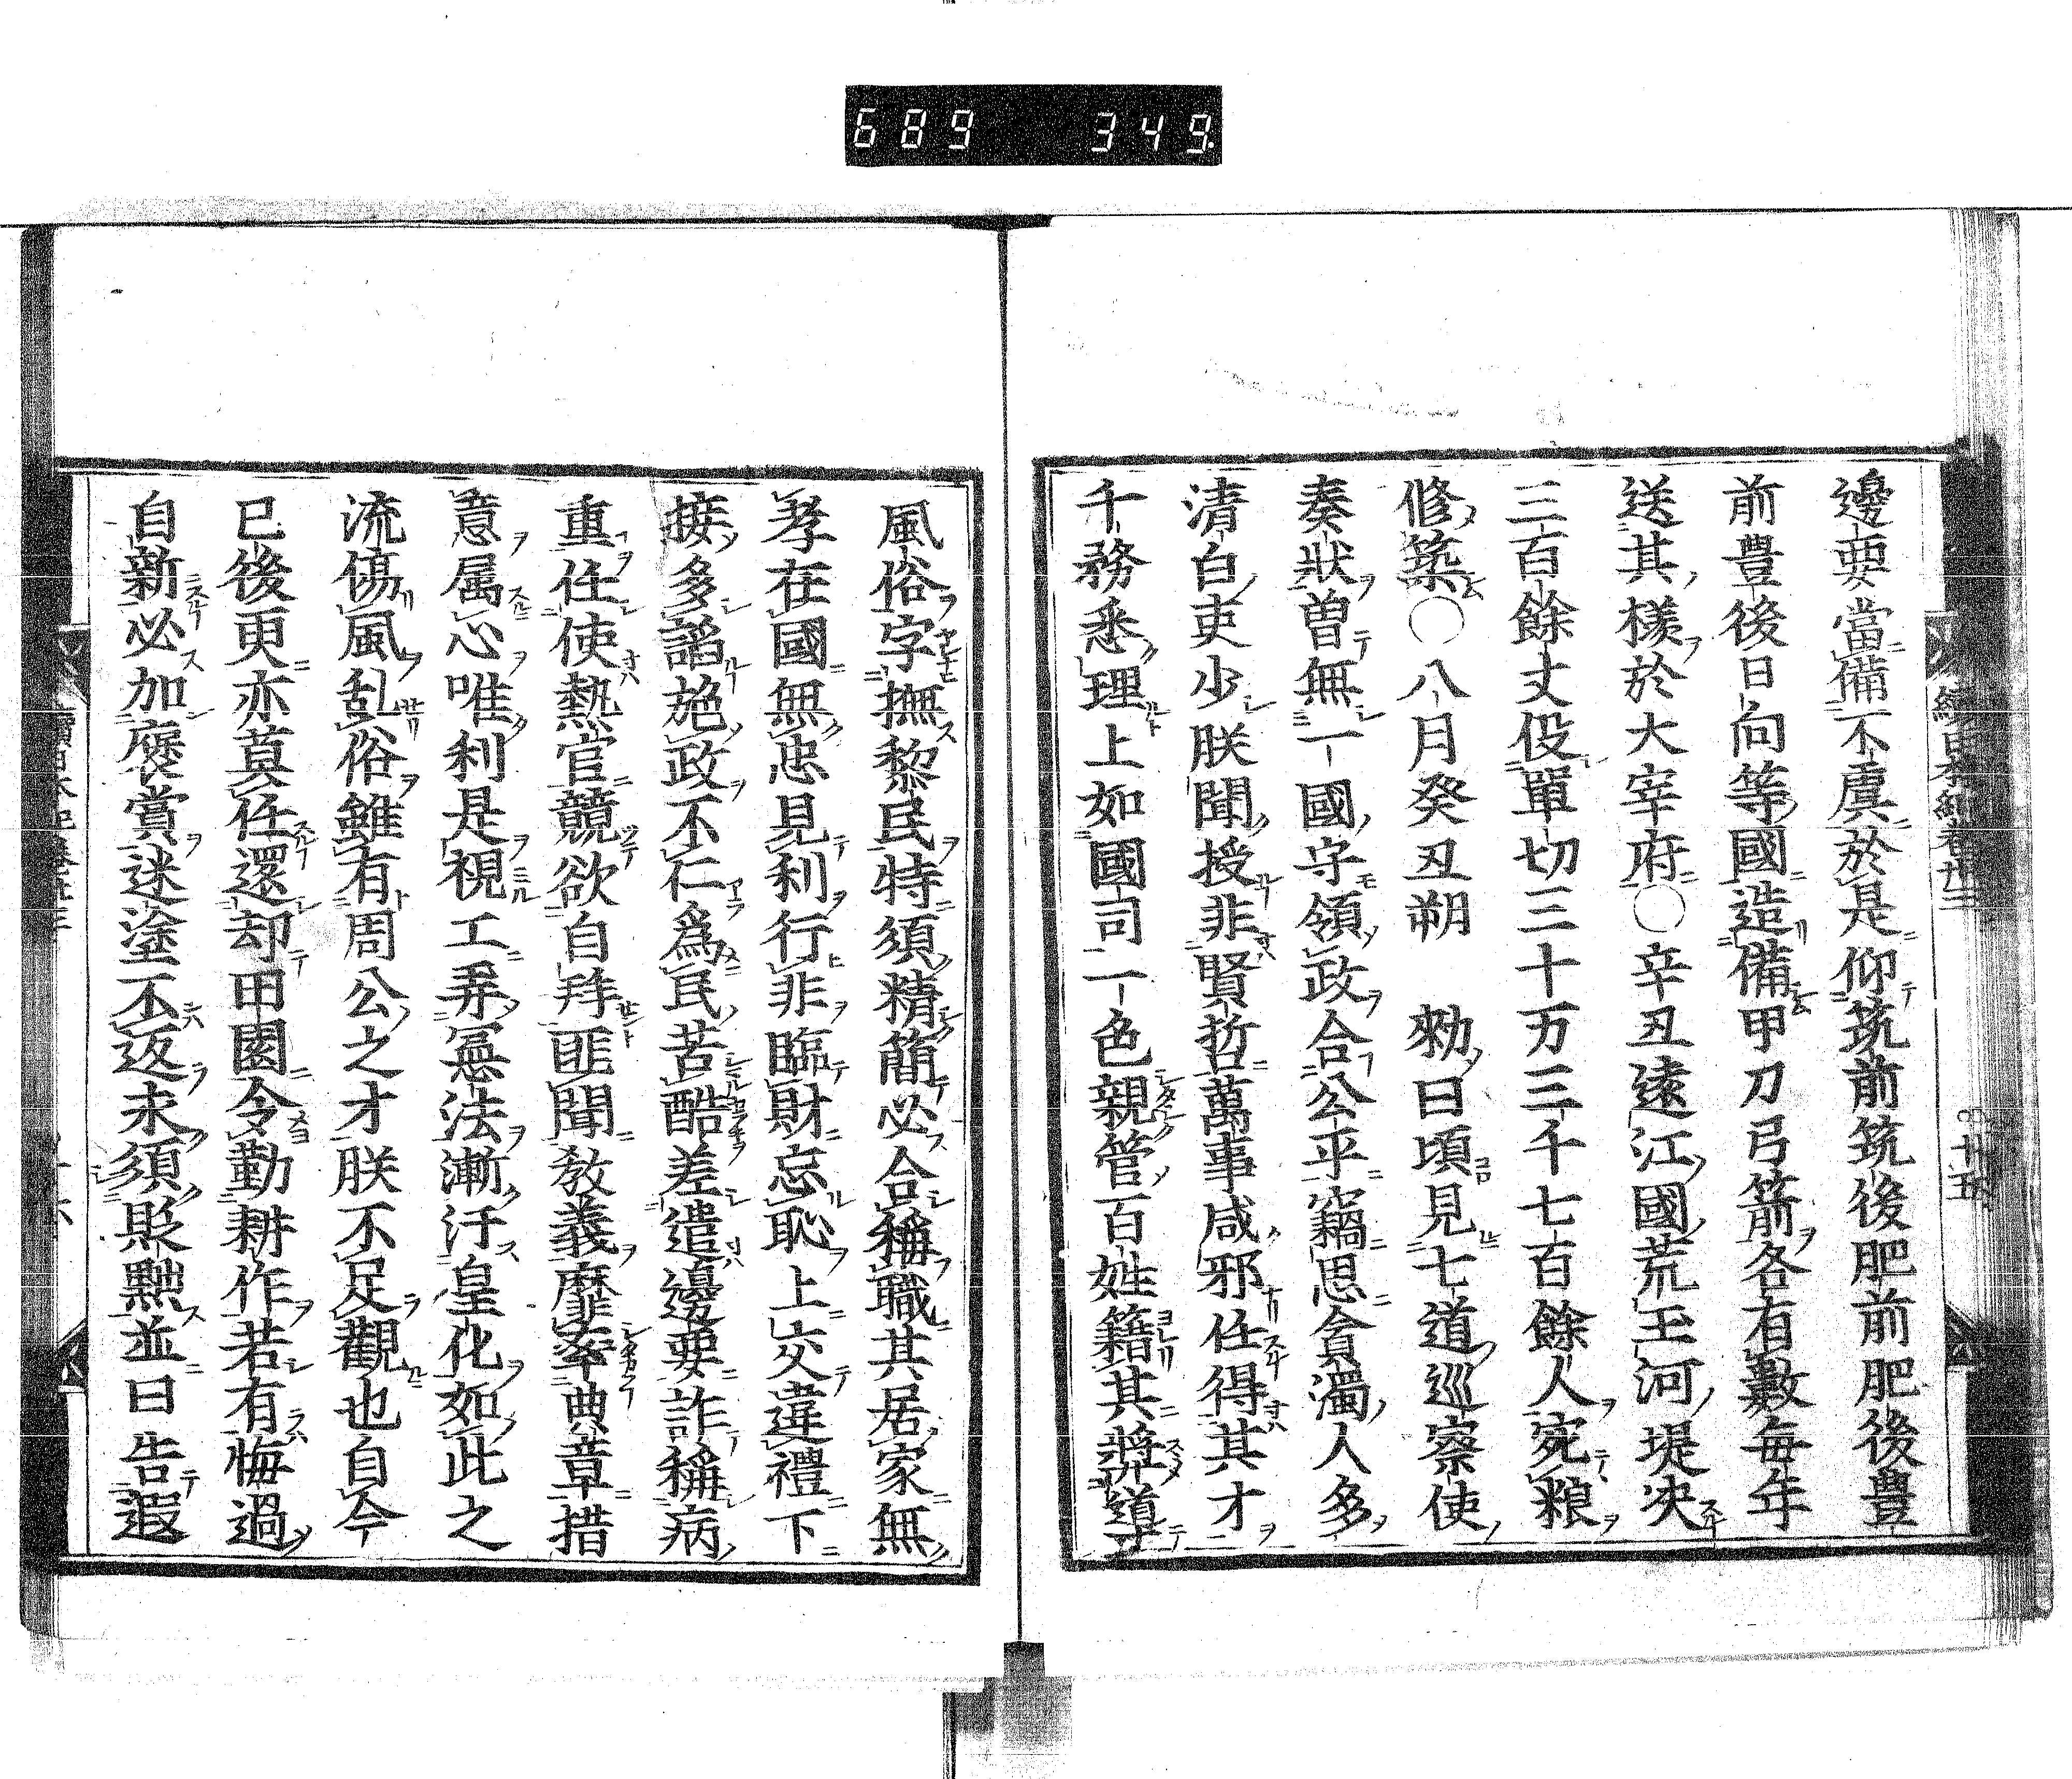 689 349
邊要當備不虞於是仰筑前筑後肥前肥後豊
前豊後日向等國造備甲刀弓箭各有數毎年
送其樣於大宰府○辛丑遠江國荒玉河堤决
三百餘丈役單切三十万三千七百餘人宛粮
修築○八月癸丑朔　勑曰頃見七道巡察使
奏狀曽無一國守領政合公平竊思貪濁人多
清白吏少朕聞授非賢哲萬事咸邪任得其才
千務悉理上如國司一色親管百姓籍其奬導
風俗字撫黎民特須精簡必合稱職其居家無
孝在國無忠見利行非臨財忘恥上交違禮下
接多諂施政不仁爲民苦酷差遣邊要詐稱病
重任使熱官競欲自拜匪聞教義靡率典章措
意属心唯利是視工弄憲法漸汙皇化如此之
流傷風乱俗雖有周公之才朕不足觀也自今
已後更亦莫任還却田園令勤耕作若有悔過
自新必加襃賞迷塗不返永須貶黜並曰告遐